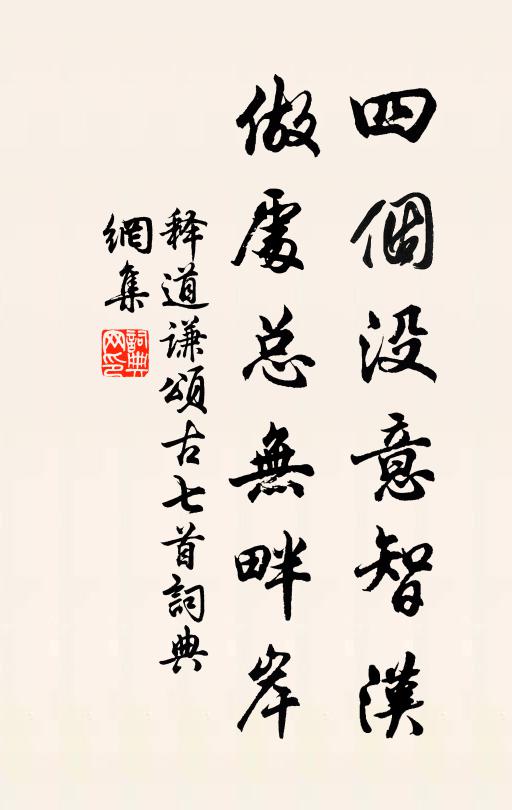 四個没意智漢
做處总無畔岸
释道谦頌古七首詞典
網集
詞典
网印